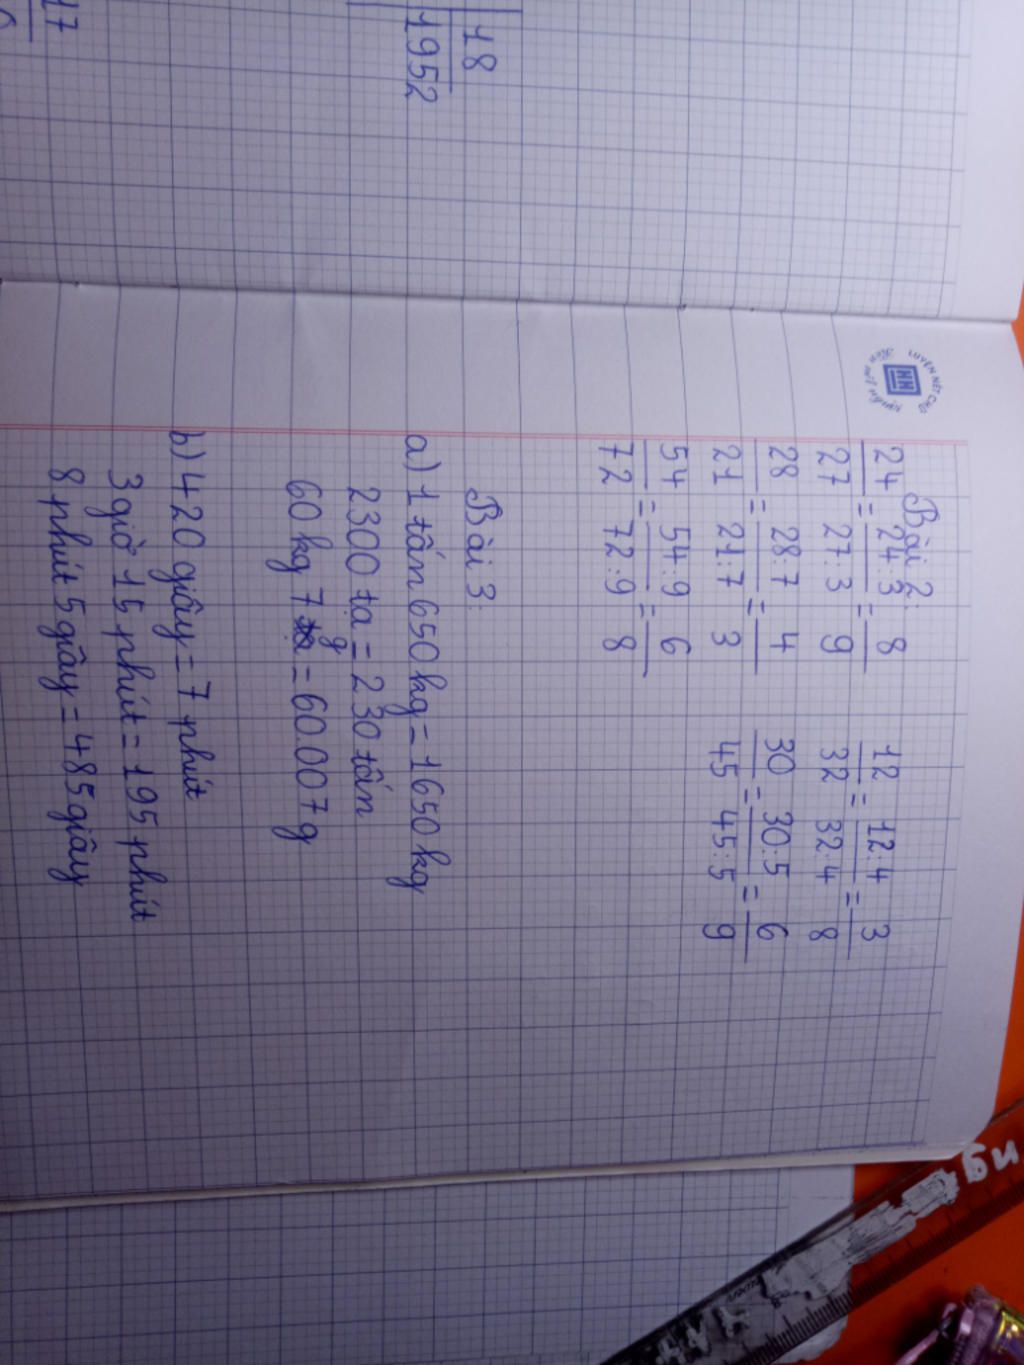 18
1952
17
LUYỆN NÉT CHỮ
Rèn nết người
HN
Bài 2:
24/27 = 24:3/27:3 = 8/9   12/32 = 12:4/32:4 = 3/8
28/21 = 28:7/21:7 = 4/3   30/45 = 30:5/45:5 = 6/9
54/72 = 54:9/72:9 = 6/8
Bài 3:
a) 1 tấn 650 kg = 1650 kg
2300 tạ = 230 tấn
60 kg 7 g = 60.007 g
b) 420 giây = 7 phút
3 giờ 15 phút = 195 phút
8 phút 5 giây = 485 giây